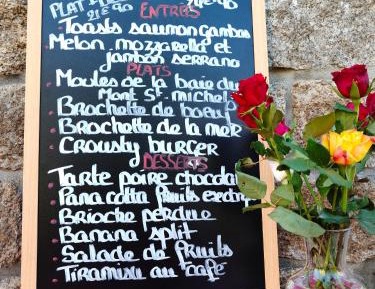 PLAT
21€90
ENTRÉES
Toasts saumon gambas
Melon mozzarella et
jambon serrano
PLATS
Moules de la baie du
Mont St-michel
Brochette de boeuf
Brochette de la mer
Crousty burger
DESSERTS
Tarte poire chocolat
Pana cotta fruits exotiq
Brioche perdue
Banana split
Salade de fruits
Tiramisu au café